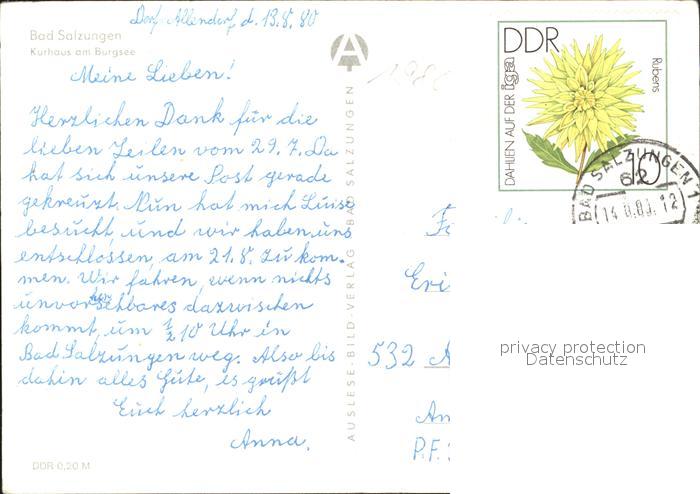 Bad Salzungen
Kurhaus am Burgsee
Dorf Allendorf, d. 13.8.80
Meine Lieben!
Herzlichen Dank für die
lieben Zeilen vom 29.7. Da
hat sich unsere Post gerade
gekreuzt. Nun hat mich Luise
besucht, und wir haben uns
entschlossen, am 21.8. zu kom-
men. Wir fahren, wenn nichts
unvorhersehbares dazwischen
kommt, um ½10 Uhr in
Bad Salzungen weg. Also bis
dahin alles Gute, es grüßt
Euch herzlich
Anna.
DDR 0,20 M
AUSLESE-BILD-VERLAG BAD SALZUNGEN
A
1980
DDR
DAHLIEN AUF DER
Rubens
10
BAD SALZUNGEN 1
62
14.8.80.12
Eri
532 A
An
P.F.:
privacy protection
Datenschutz